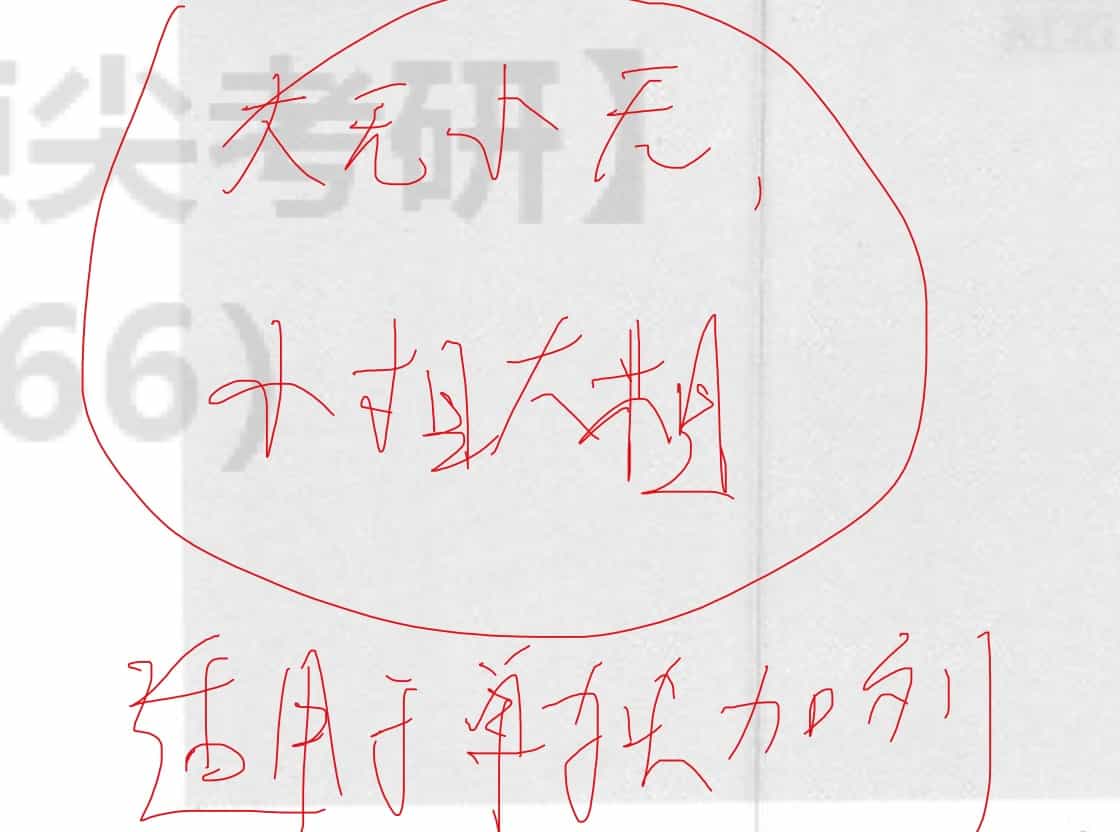 尖考研】
66)
大无小无,
小相大相
适用于单独加列